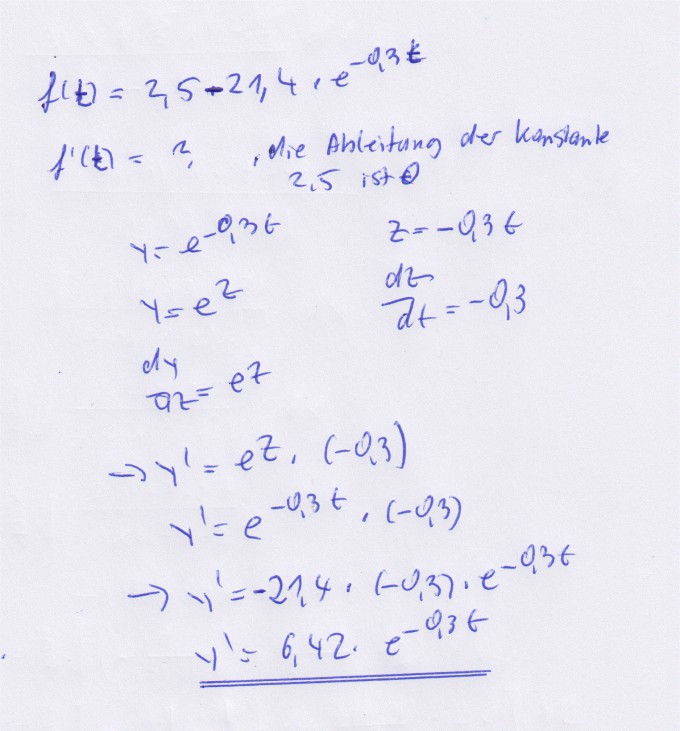 f(t) = 2,5 - 21,4 · e^-0,3t
f'(t) = ? , die Ableitung der Konstante
2,5 ist 0
y = e^-0,3t z = -0,3t
y = e^z dz/dt = -0,3
dy/dz = e^z
→ y' = e^z · (-0,3)
y' = e^-0,3t · (-0,3)
→ y' = -21,4 · (-0,3) · e^-0,3t
y' = 6,42 · e^-0,3t